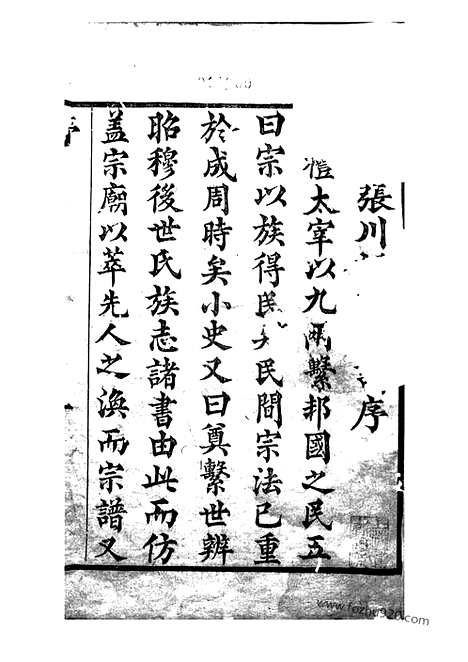 張川 序
禮太宰以九兩繫邦國之民五
曰宗以族得民 民間宗法已重
於成周時矣小史又曰奠繫世辨
昭穆後世氏族志諸書由此而仿
蓋宗廟以萃先人之渙而宗譜又
序
www.fozhu920.com